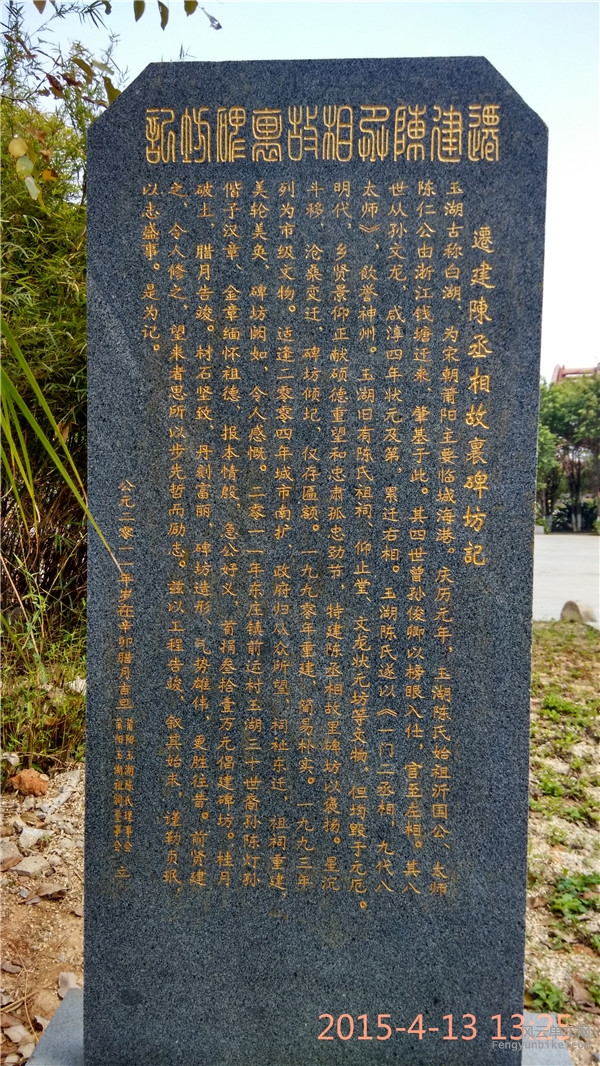 遷建陳丞相故里碑坊記
遷建陳丞相故裏碑坊記
玉湖古称白湖，为宋朝莆阳主要临城海港。庆历元年，玉湖陈氏始祖沂国公、太师
陈仁公由浙江钱塘迁来，肇基于此。其四世曾孙俊卿以榜眼入仕，官至左相。其八
世从孙文龙，咸淳四年状元及第，累迁右相。玉湖陈氏遂以《一门二丞相，九代八
太师》，飲誉神州。玉湖旧有陈氏祖祠、仰止堂、文龙状元坊等文物，但均毁于元厄。
明代，乡贤景仰正献硕德重望和忠肃孤忠劲节，特建陈丞相故里碑坊以褒扬。星沉
斗移，沧桑变迁，碑坊倾圮，仅存匾额。一九九零年重建，简易朴实。一九九三年
列为市级文物。适逢二零零四年城市南扩，政府归从众所望，祠祉东迁，祖祠重建，
美轮美奂，碑坊阙如，令人感慨。二零一一年东庄镇前运村玉湖三十世裔孙陈灯孙
偕子汉章、金章缅怀祖德，报本情殷，急公好义，首捐叁拾壹万元倡建碑坊。桂月
破土，腊月告浚。材石坚致，丹刻富丽，碑坊造形，气势雄伟，更胜往昔。前贤建
之，令人修之，望来者思所以步先哲而励志。兹以工程告竣，叙其始末，谨勒贞珉，
以志盛事。是为记。
公元二零一一年岁在辛卯腊月吉旦
莆阳玉湖陈氏理事会
莆阳玉湖祖祠董事会
立
2015-4-13 13:25
风云单车网
Fengyunbike.com